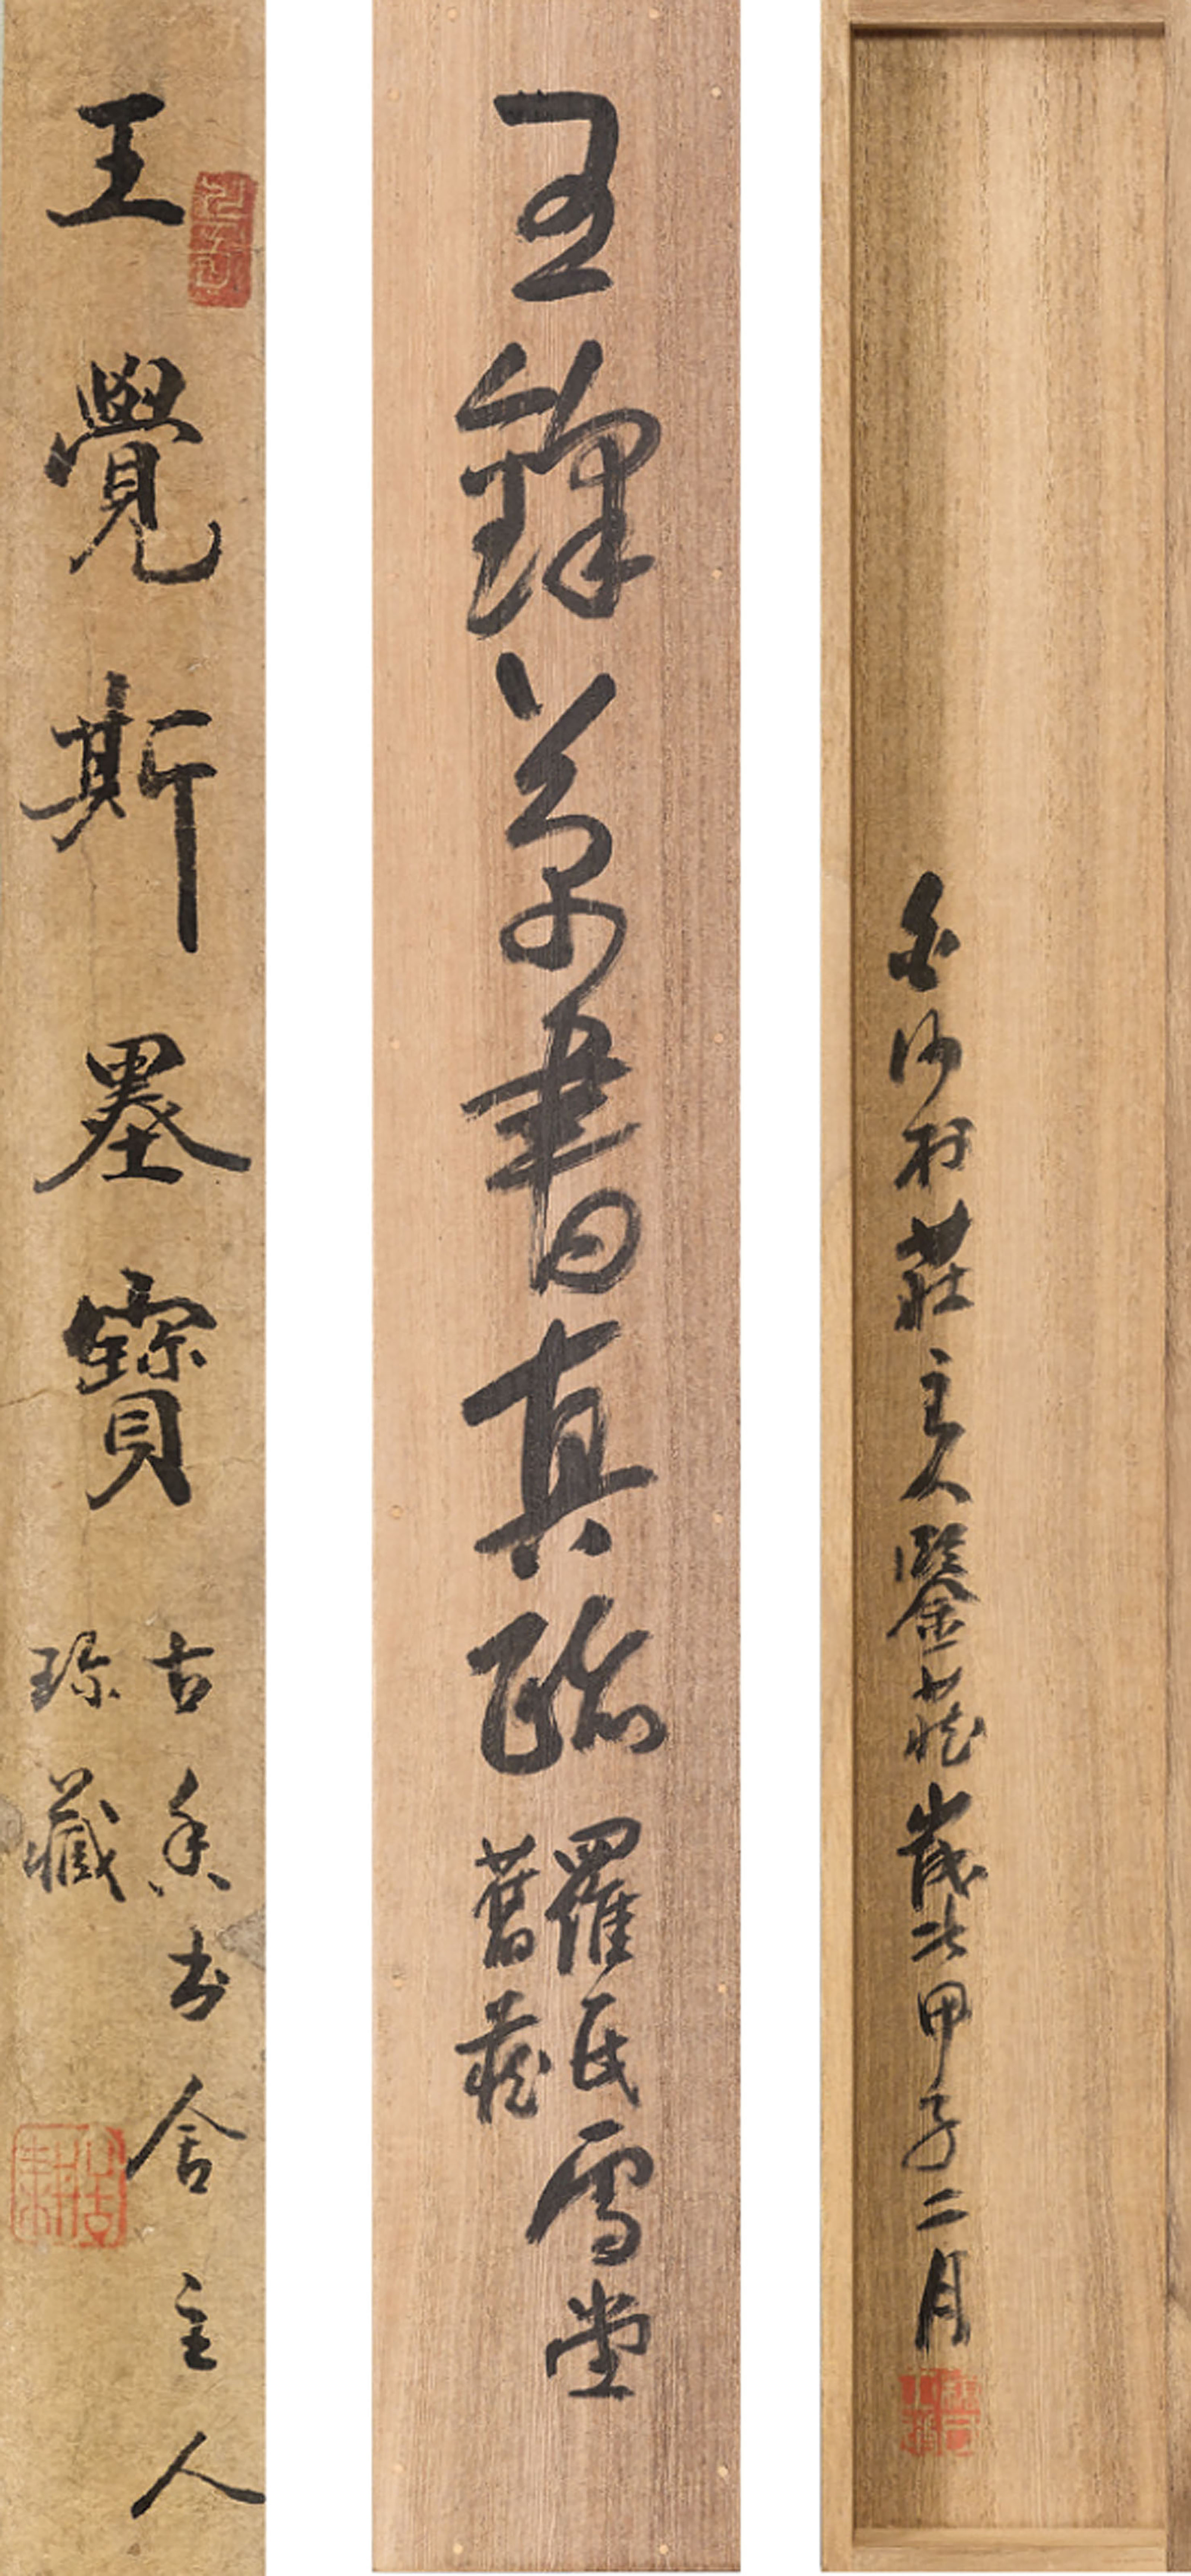 王覺斯墨寶
古香書舍主人
珍藏
王鐸草書真跡
羅氏雪堂
舊藏
白沙村莊主人鑒藏歲次甲子二月